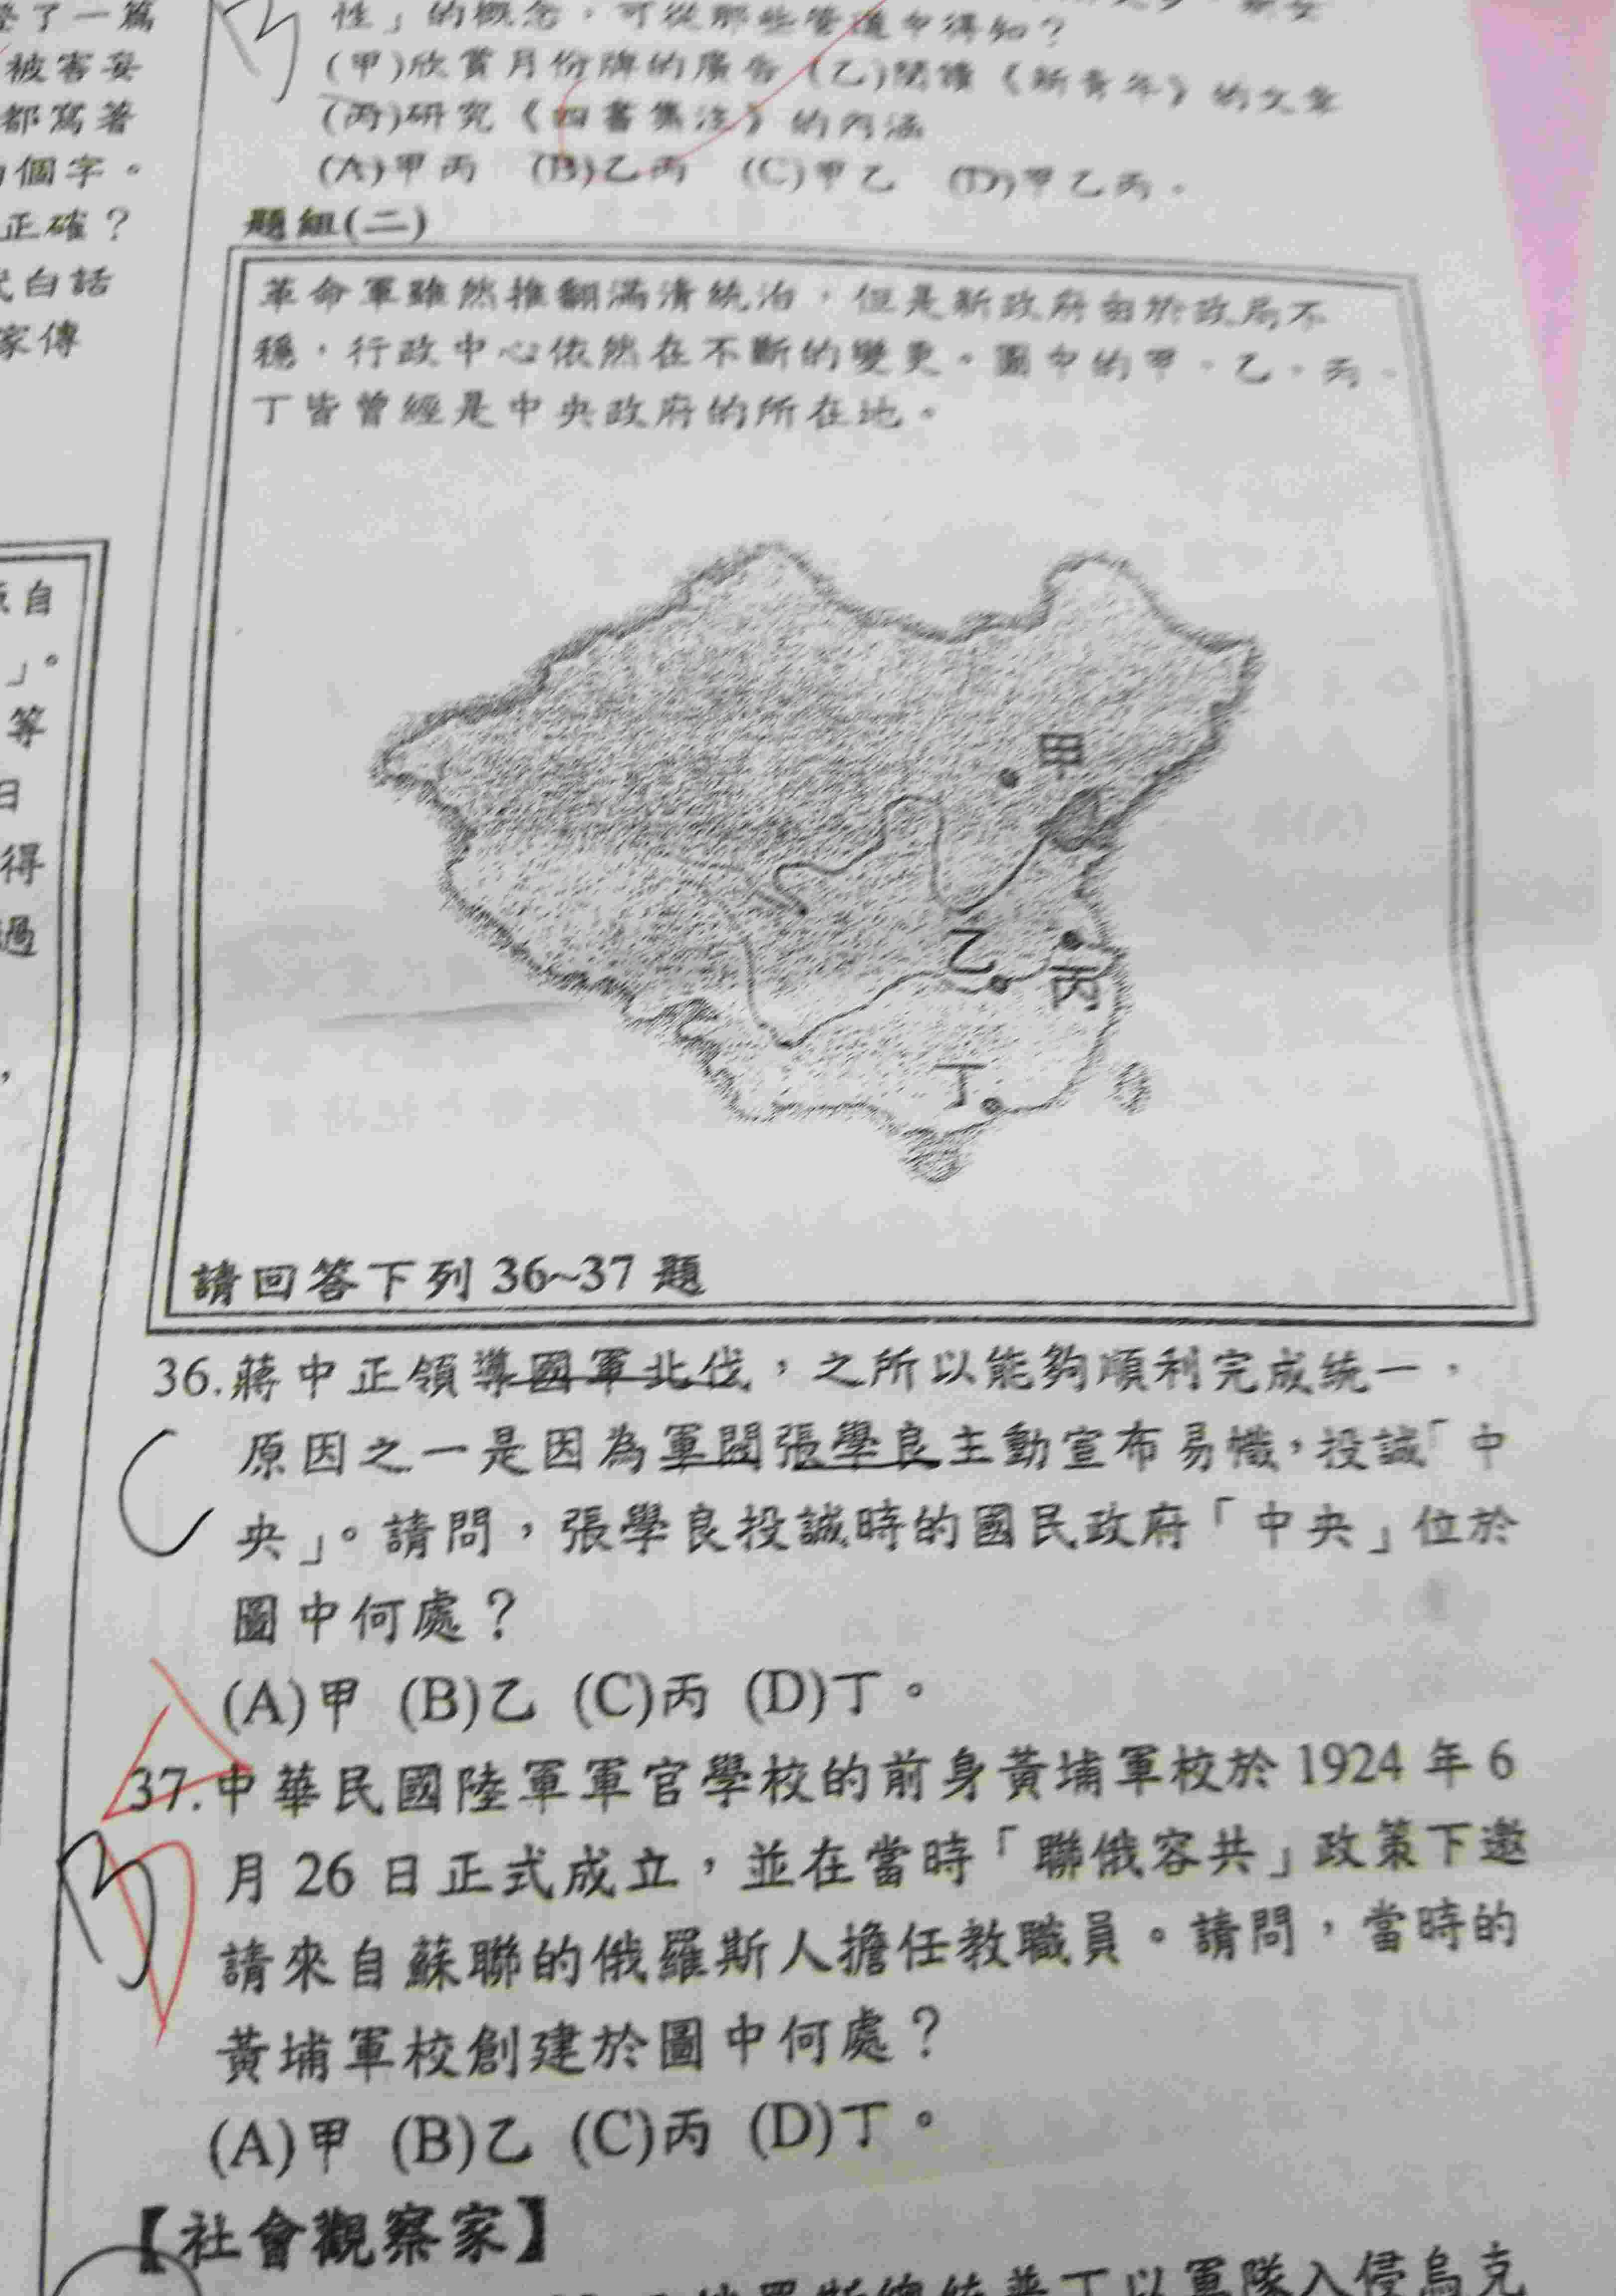 登了一篇
被害妄
都寫著
個字。
正確?
白話
家傳
自
」。
等
日
得
過
,
B
性」的概念,可從那些管道中得知?
(甲)欣賞月份牌的廣告 (乙)閱讀《新青年》的文章
(丙)研究《四書集注》的內涵
(A)甲丙 (B)乙丙 (C)甲乙 (D)甲乙丙。
題組(二)
革命軍雖然推翻滿清統治,但是新政府由於政局不
穩,行政中心依然在不斷的變更。圖中的甲、乙、丙、
丁皆曾經是中央政府的所在地。
甲
乙
丙
丁
請回答下列 36~37 題
36.蔣中正領導國軍北伐,之所以能夠順利完成統一,
C
原因之一是因為軍閥張學良主動宣布易幟,投誠「中
央」。請問,張學良投誠時的國民政府「中央」位於
圖中何處?
(A)甲 (B)乙 (C)丙 (D)丁。
37.中華民國陸軍軍官學校的前身黃埔軍校於 1924 年 6
B
月 26 日正式成立,並在當時「聯俄容共」政策下邀
請來自蘇聯的俄羅斯人擔任教職員。請問,當時的
黃埔軍校創建於圖中何處?
(A)甲 (B)乙 (C)丙 (D)丁。
【社會觀察家】
俄羅斯總統普丁以軍隊入侵烏克